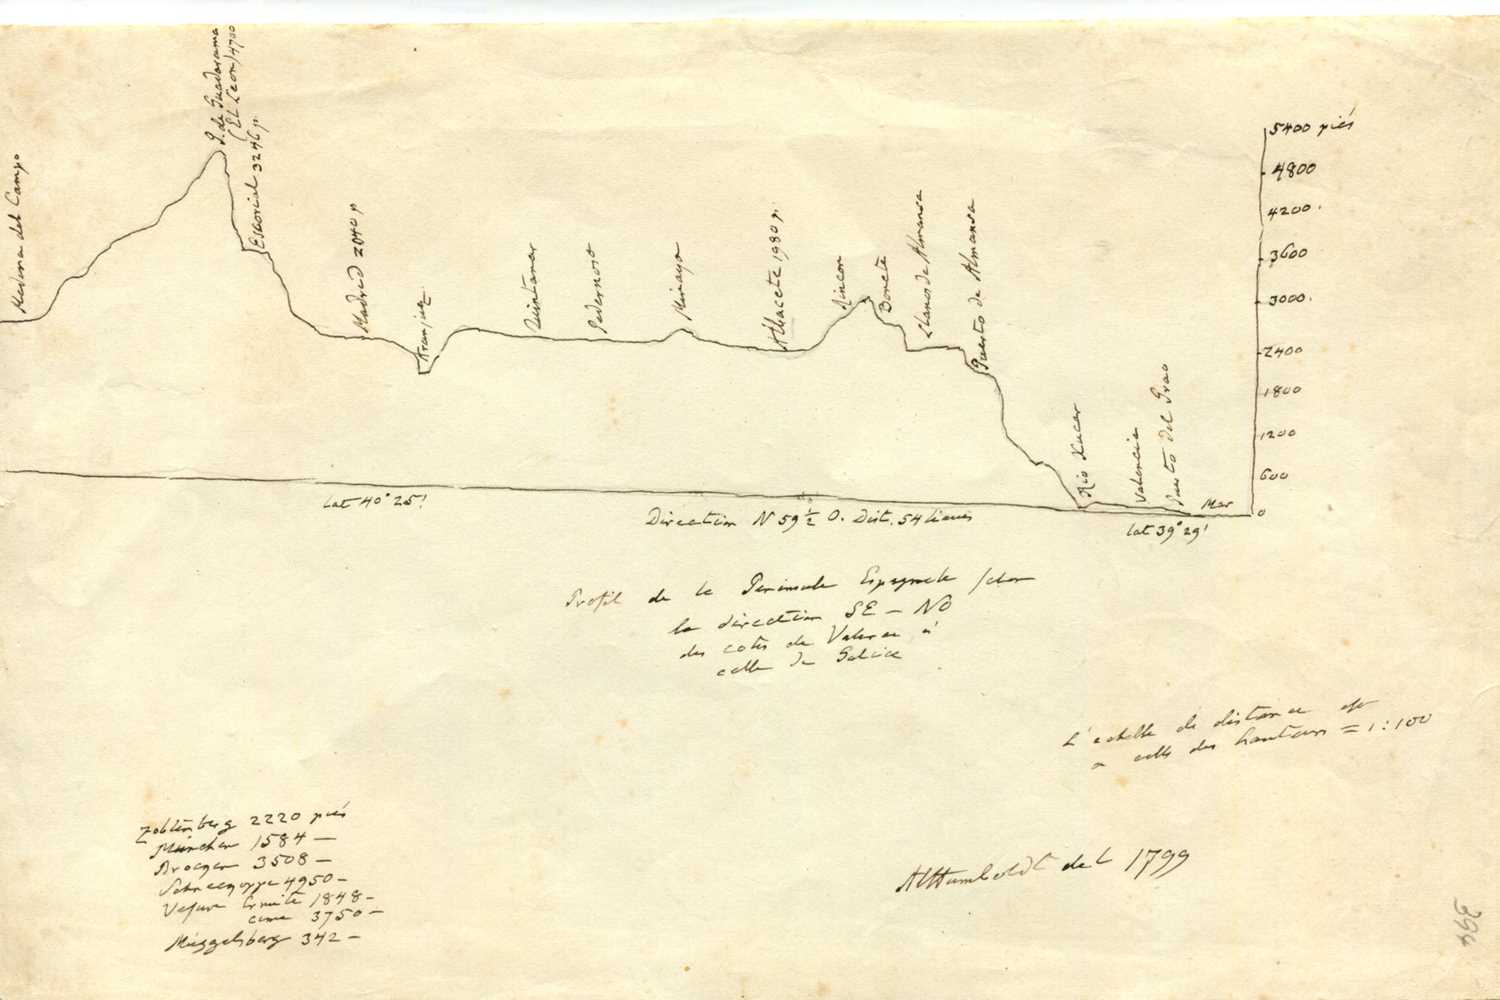 Medina del Campo
P. de Guadarama
(El Leon) 4700
Escorial 3246 p.
Madrid 2040 p
Aranjuez
Quintanar
Pedernoso
Minaya
Albacete 1980 p.
Rincon
Bonete
Llanos de Almansa
Puerto de Almansa
Rio Xucar
Valencia
Puerto del Grao
Mar
5400 piés
4800
4200.
3600
3000.
2400
1800
1200
600
0
Lat 40° 25!
Direction N 59 ½ O. Dist. 54 lieues
Lat 39° 29!
Profil de la Peninsule Espagnole selon
la direction SE - NO
des cotes de Valence à
celle de Galice
L'echelle de distance est
a celle des hauteurs = 1:100
Zobtenberg 2220 piés
München 1584 —
Brocgen 3508 —
Schneegoppe 4950 —
Vesuve Ermite 1848 -
cime 3750 —
Müggelsberg 342 —
AlHumboldt del 1799